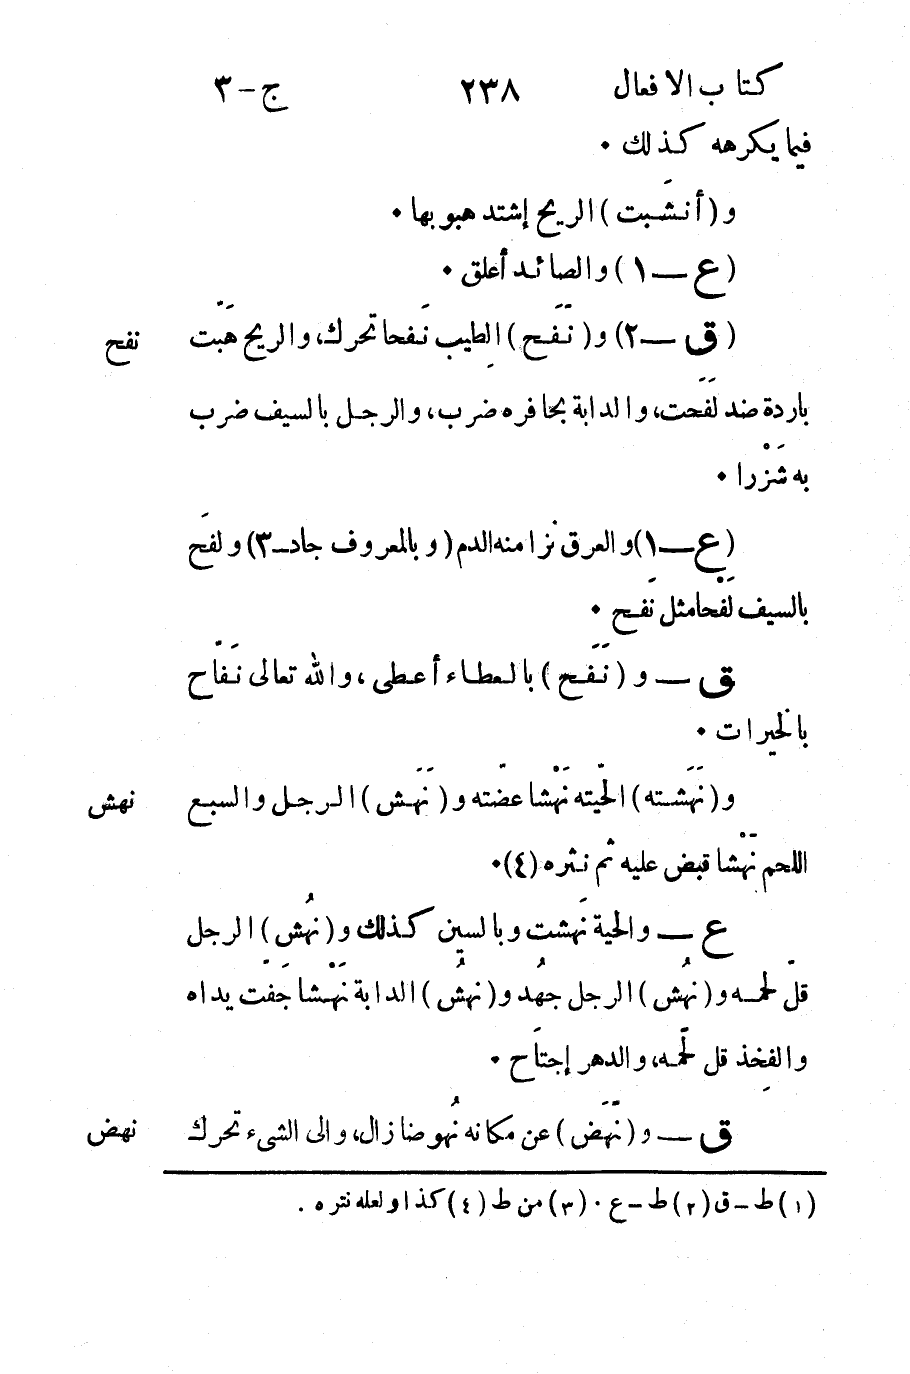 كتاب الافعال ٢٣٨ ج-٣
فيما يكرهه كذلك ٠
و (أنشَبت) الريح إشتد هبوبها ٠
(ع — ١) والصائد أعلق ٠
(ق — ٢) و (نَفَح) الطِيب نَفحا تحرك، والريح هَبّت نفح
باردة ضد لَفَحت، والدابة بحافره ضرب، والرجل بالسيف ضرب
به شَزْرا ٠
(ع — ١) والعرق نزا منه الدم (وبالمعروف جاد-٣) ولفَح
بالسيف لَفْحا مثل نَفح ٠
ق — و (نَفَح) بالعطاء أعطى، والله تعالى نَفّاح
بالخيرات ٠
و (نَهَشته) الحيّته نَهْشا عضّته و (نَهَش) الرجل والسبع نهش
اللحم نَهْشا قبض عليه ثم نثره (٤)٠
ع — والحية نَهشت وبالسين كذلك و (نهُش) الرجل
قلّ لحمه و (نهُش) الرجل جهُد و (نهُش) الدابة نَهْشا خَفّت يداه
والفخِذ قل لحمّه، والدهر إجتَاح ٠
ق — و (نَهَض) عن مكانه نُهوضا زال، والى الشىء تحرك نهض
(١) ط - ق (٢) ط - ع ٠ (٣) من ط (٤) كذا ولعله نتره .